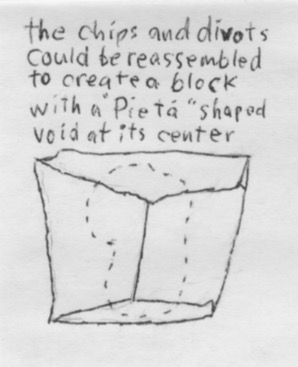 the chips and divots
could be reassembled
to create a block
with a "Pietá" shaped
void at its center